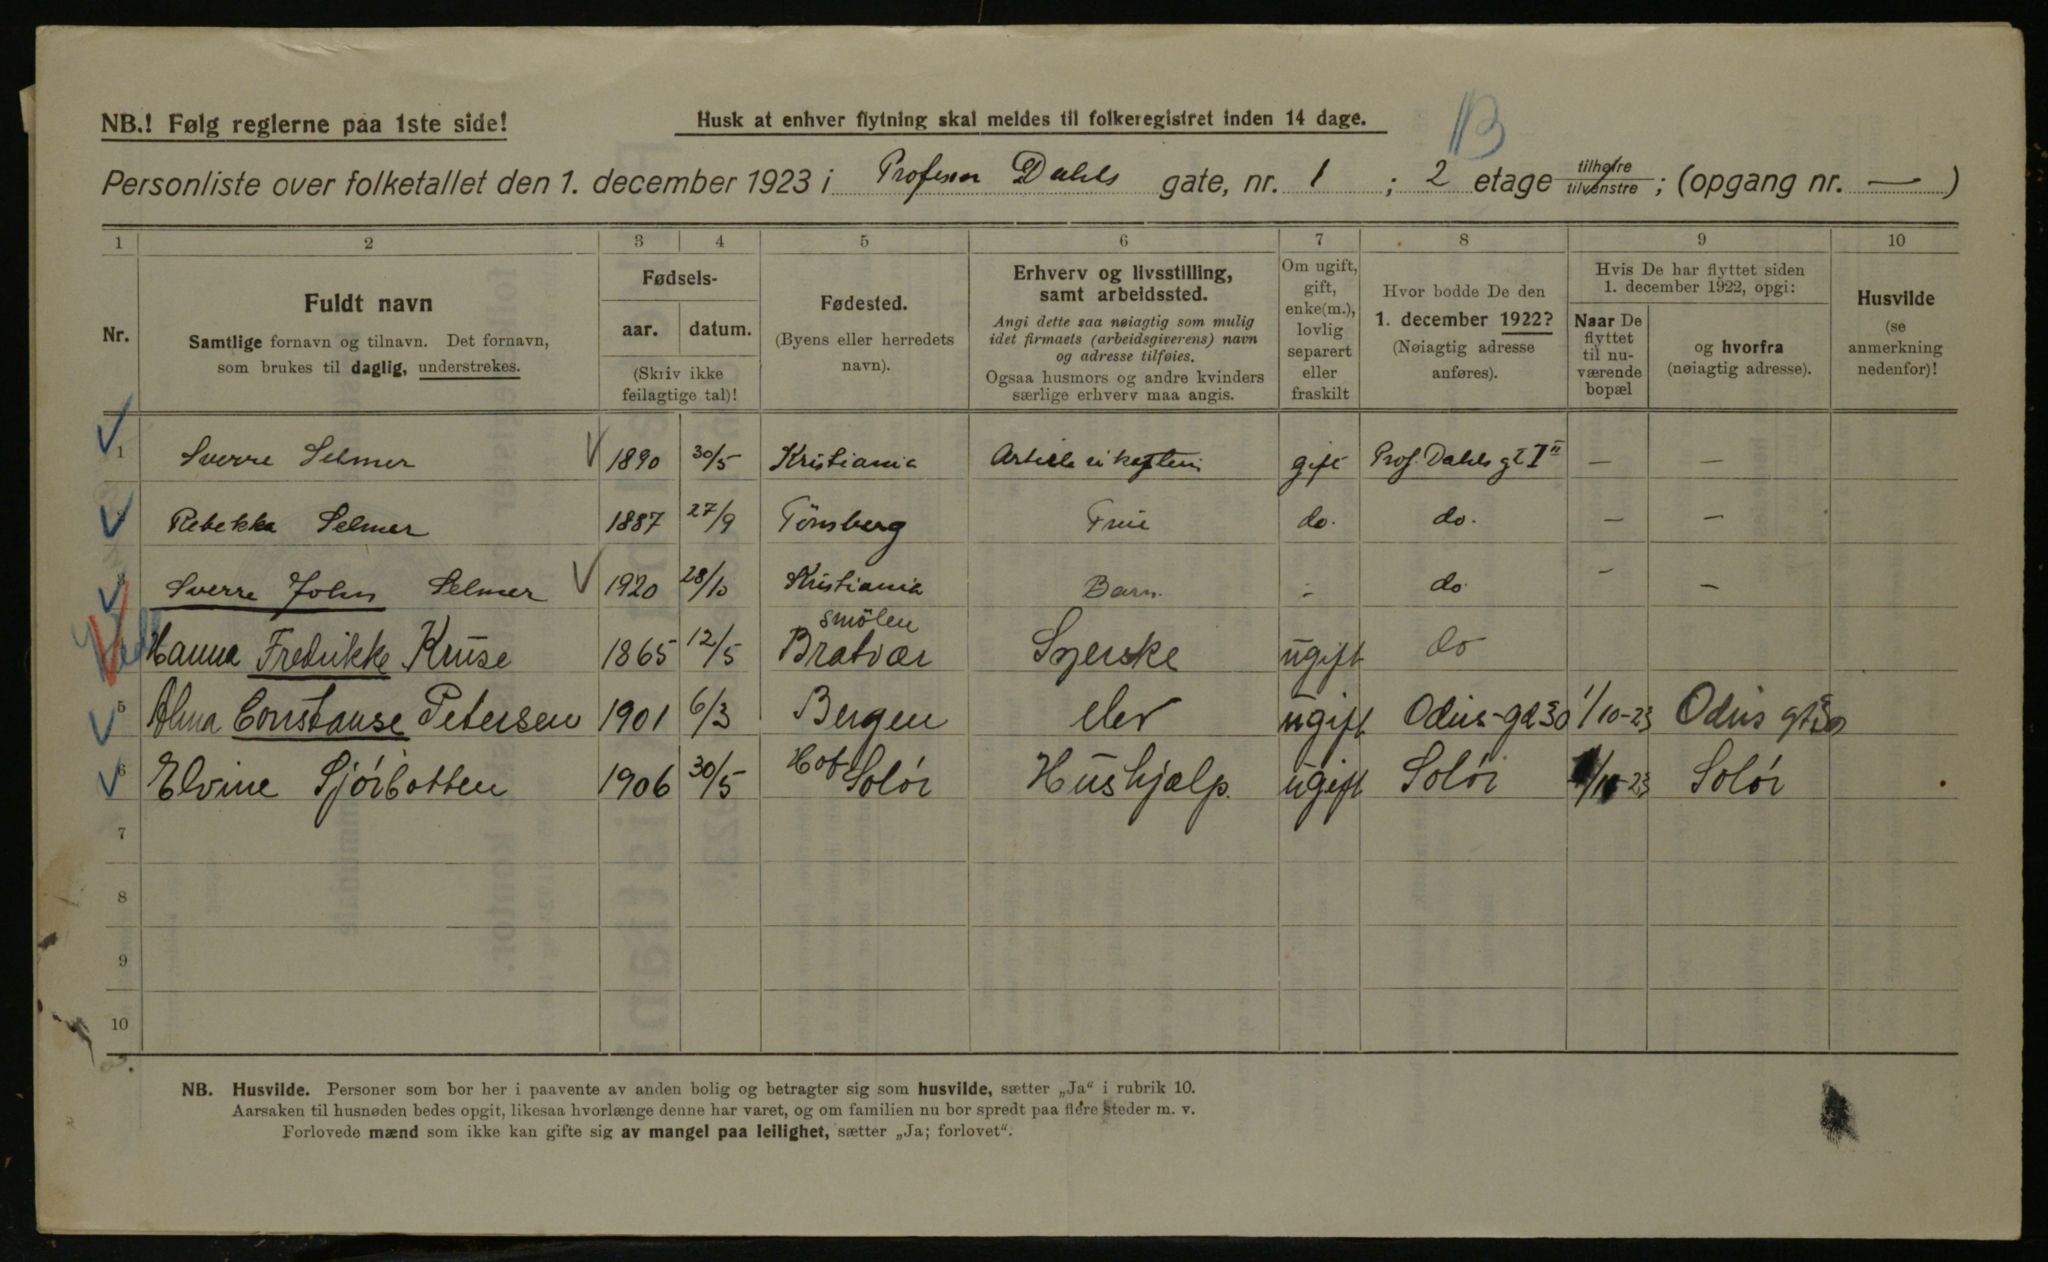 NB.! Følg reglerne paa 1ste side!
Husk at enhver flytning skal meldes til folkeregistret inden 14 dage.
B
Personliste over folketallet den 1. december 1923 i Professor Dahls gate, nr. 1 ; 2 etage tilhøire tilvenstre ; (opgang nr. — )
1 2 3 4 5 6 7 8 9 10
Nr.
Fuldt navn
Samtlige fornavn og tilnavn. Det fornavn,
som brukes til daglig, understrekes.
Fødsels-
aar. datum.
(Skriv ikke
feilagtige tal)!
Fødested.
(Byens eller herredets
navn).
Erhverv og livsstilling,
samt arbeidssted.
Angi dette saa nøiagtig som mulig
idet firmaets (arbeidsgiverens) navn
og adresse tilføies.
Ogsaa husmors og andre kvinders
særlige erhverv maa angis.
Om ugift,
gift,
enke(m.),
lovlig
separert
eller
fraskilt
Hvor bodde De den
1. december 1922?
(Nøiagtig adresse
anføres).
Hvis De har flyttet siden
1. december 1922, opgi:
Naar De
flyttet
til nu-
værende
bopæl
og hvorfra
(nøiagtig adresse).
Husvilde
(se
anmerkning
nedenfor)!
1 Sverre Selmer 1890 30/5 Kristiania gift Prof. Dahls gt 1 II — —
2 Rebekka Selmer 1887 27/9 Tönsberg Frue do. do. — —
3 Sverre John Selmer 1920 28/10 Kristiania Barn. - do — —
Hanna Fredrikke Kruse 1865 12/5 Smölen Bratvær Syerske ugift do
5 Alma Constanse Petersen 1901 6/3 Bergen elev ugift Odins-gd 30 1/10-23 Odins gt 30
6 Elvine Sjörbotten 1906 30/5 Hof Solör Hushjælp. ugift Solör 1/10-23 Solör
7
8
9
10
NB. Husvilde. Personer som bor her i paavente av anden bolig og betragter sig som husvilde, sætter „Ja" i rubrik 10.
Aarsaken til husnøden bedes opgit, likesaa hvorlænge denne har varet, og om familien nu bor spredt paa flere steder m. v.
Forlovede mænd som ikke kan gifte sig av mangel paa leilighet, sætter „Ja; forlovet".